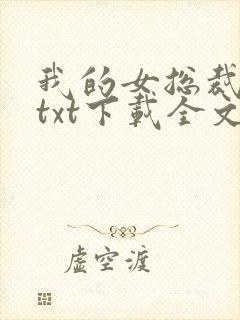 我的女总裁
txt下载全文
虚空渡